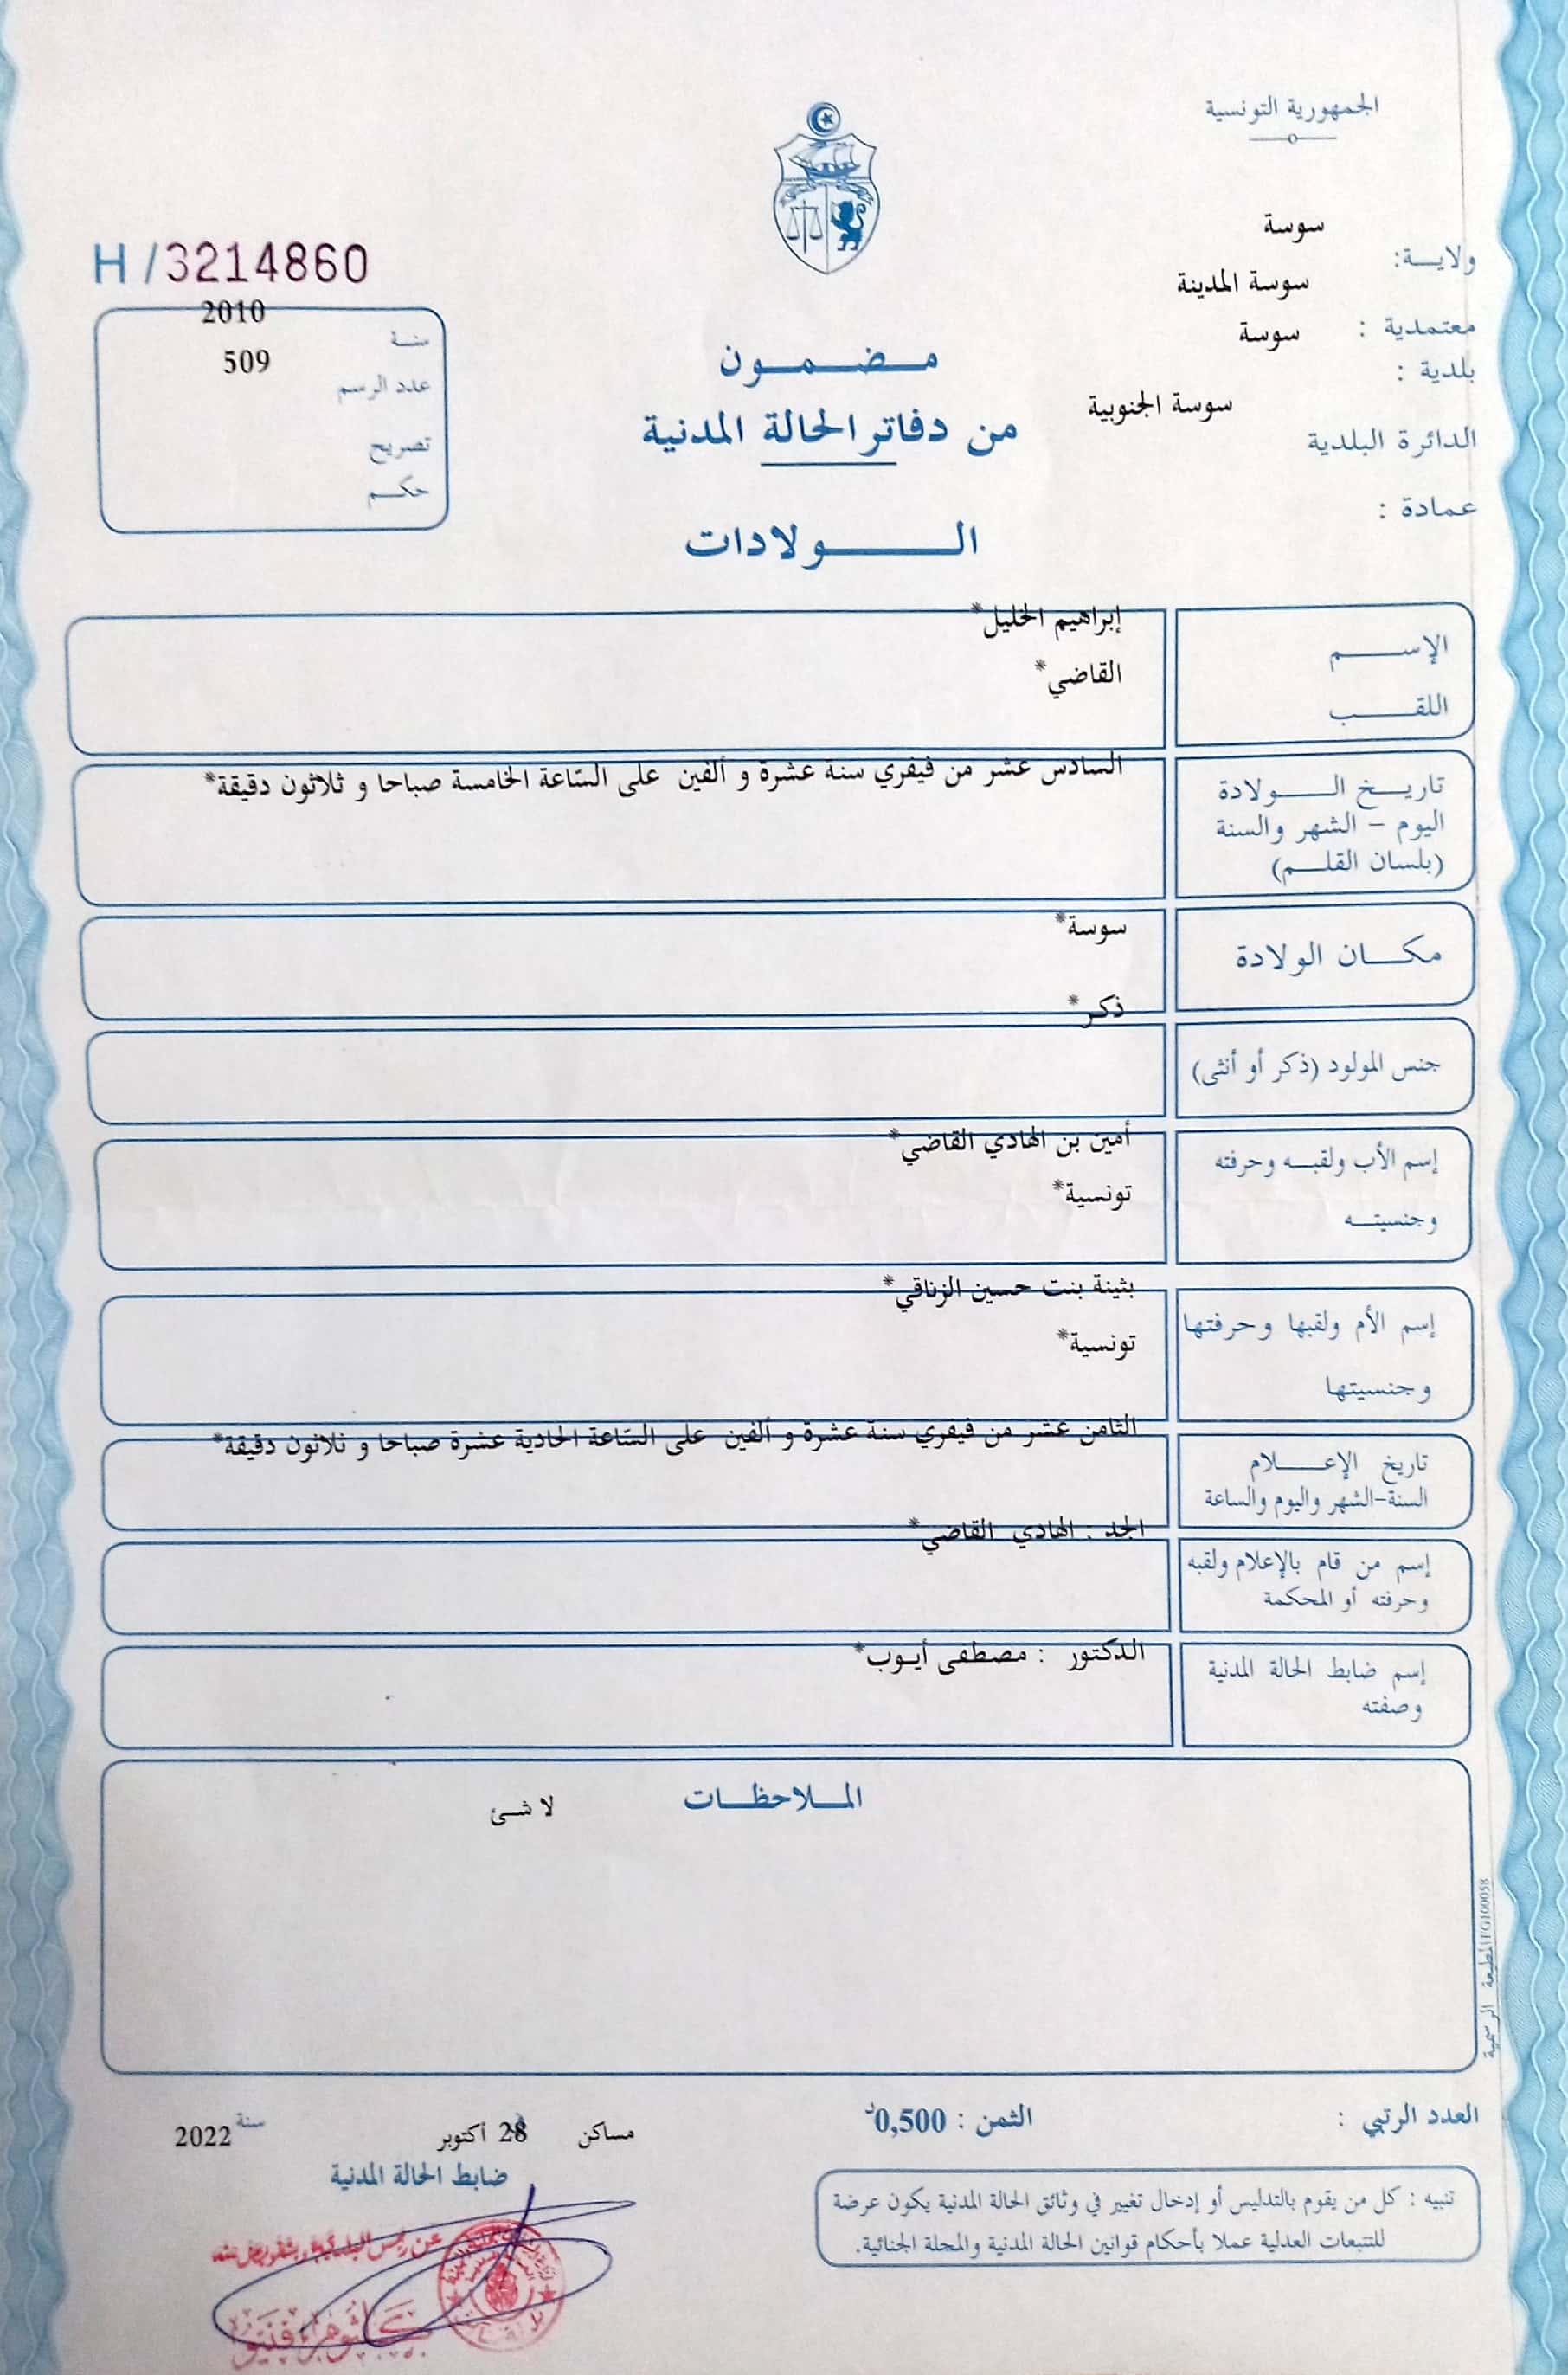 الجمهورية التونسية
ولاية: سوسة
معتمدية : سوسة المدينة
بلدية : سوسة
الدائرة البلدية سوسة الجنوبية
عمادة :
مضمون
من دفاتر الحالة المدنية
الولادات
H/3214860
سنة 2010
عدد الرسم 509
تصريح
حكم
الإسم إبراهيم الخليل*
اللقب القاضي*
تاريخ الولادة السادس عشر من فيفري سنة عشرة و ألفين على السّاعة الخامسة صباحا و ثلاثون دقيقة*
اليوم – الشهر والسنة
(بلسان القلم)
مكان الولادة سوسة*
جنس المولود (ذكر أو أنثى) ذكر*
إسم الأب ولقبه وحرفته أمين بن الهادي القاضي*
وجنسيته تونسية*
إسم الأم ولقبها وحرفتها بثينة بنت حسين الزناقي*
وجنسيتها تونسية*
تاريخ الإعلام الثامن عشر من فيفري سنة عشرة و ألفين على السّاعة الحادية عشرة صباحا و ثلاثون دقيقة*
السنة-الشهر واليوم والساعة
إسم من قام بالإعلام ولقبه الجد : الهادي القاضي*
وحرفته أو المحكمة
إسم ضابط الحالة المدنية الدكتور : مصطفى أيوب*
وصفته
الملاحظات لا شئ
المطبعة الرسمية FG100058
العدد الرتبي :
الثمن : 0,500د
مساكن 28 أكتوبر سنة 2022
ضابط الحالة المدنية
تنبيه : كل من يقوم بالتدليس أو إدخال تغيير في وثائق الحالة المدنية يكون عرضة
للتتبعات العدلية عملا بأحكام قوانين الحالة المدنية والمجلة الجنائية.
عن رئيس البلدية